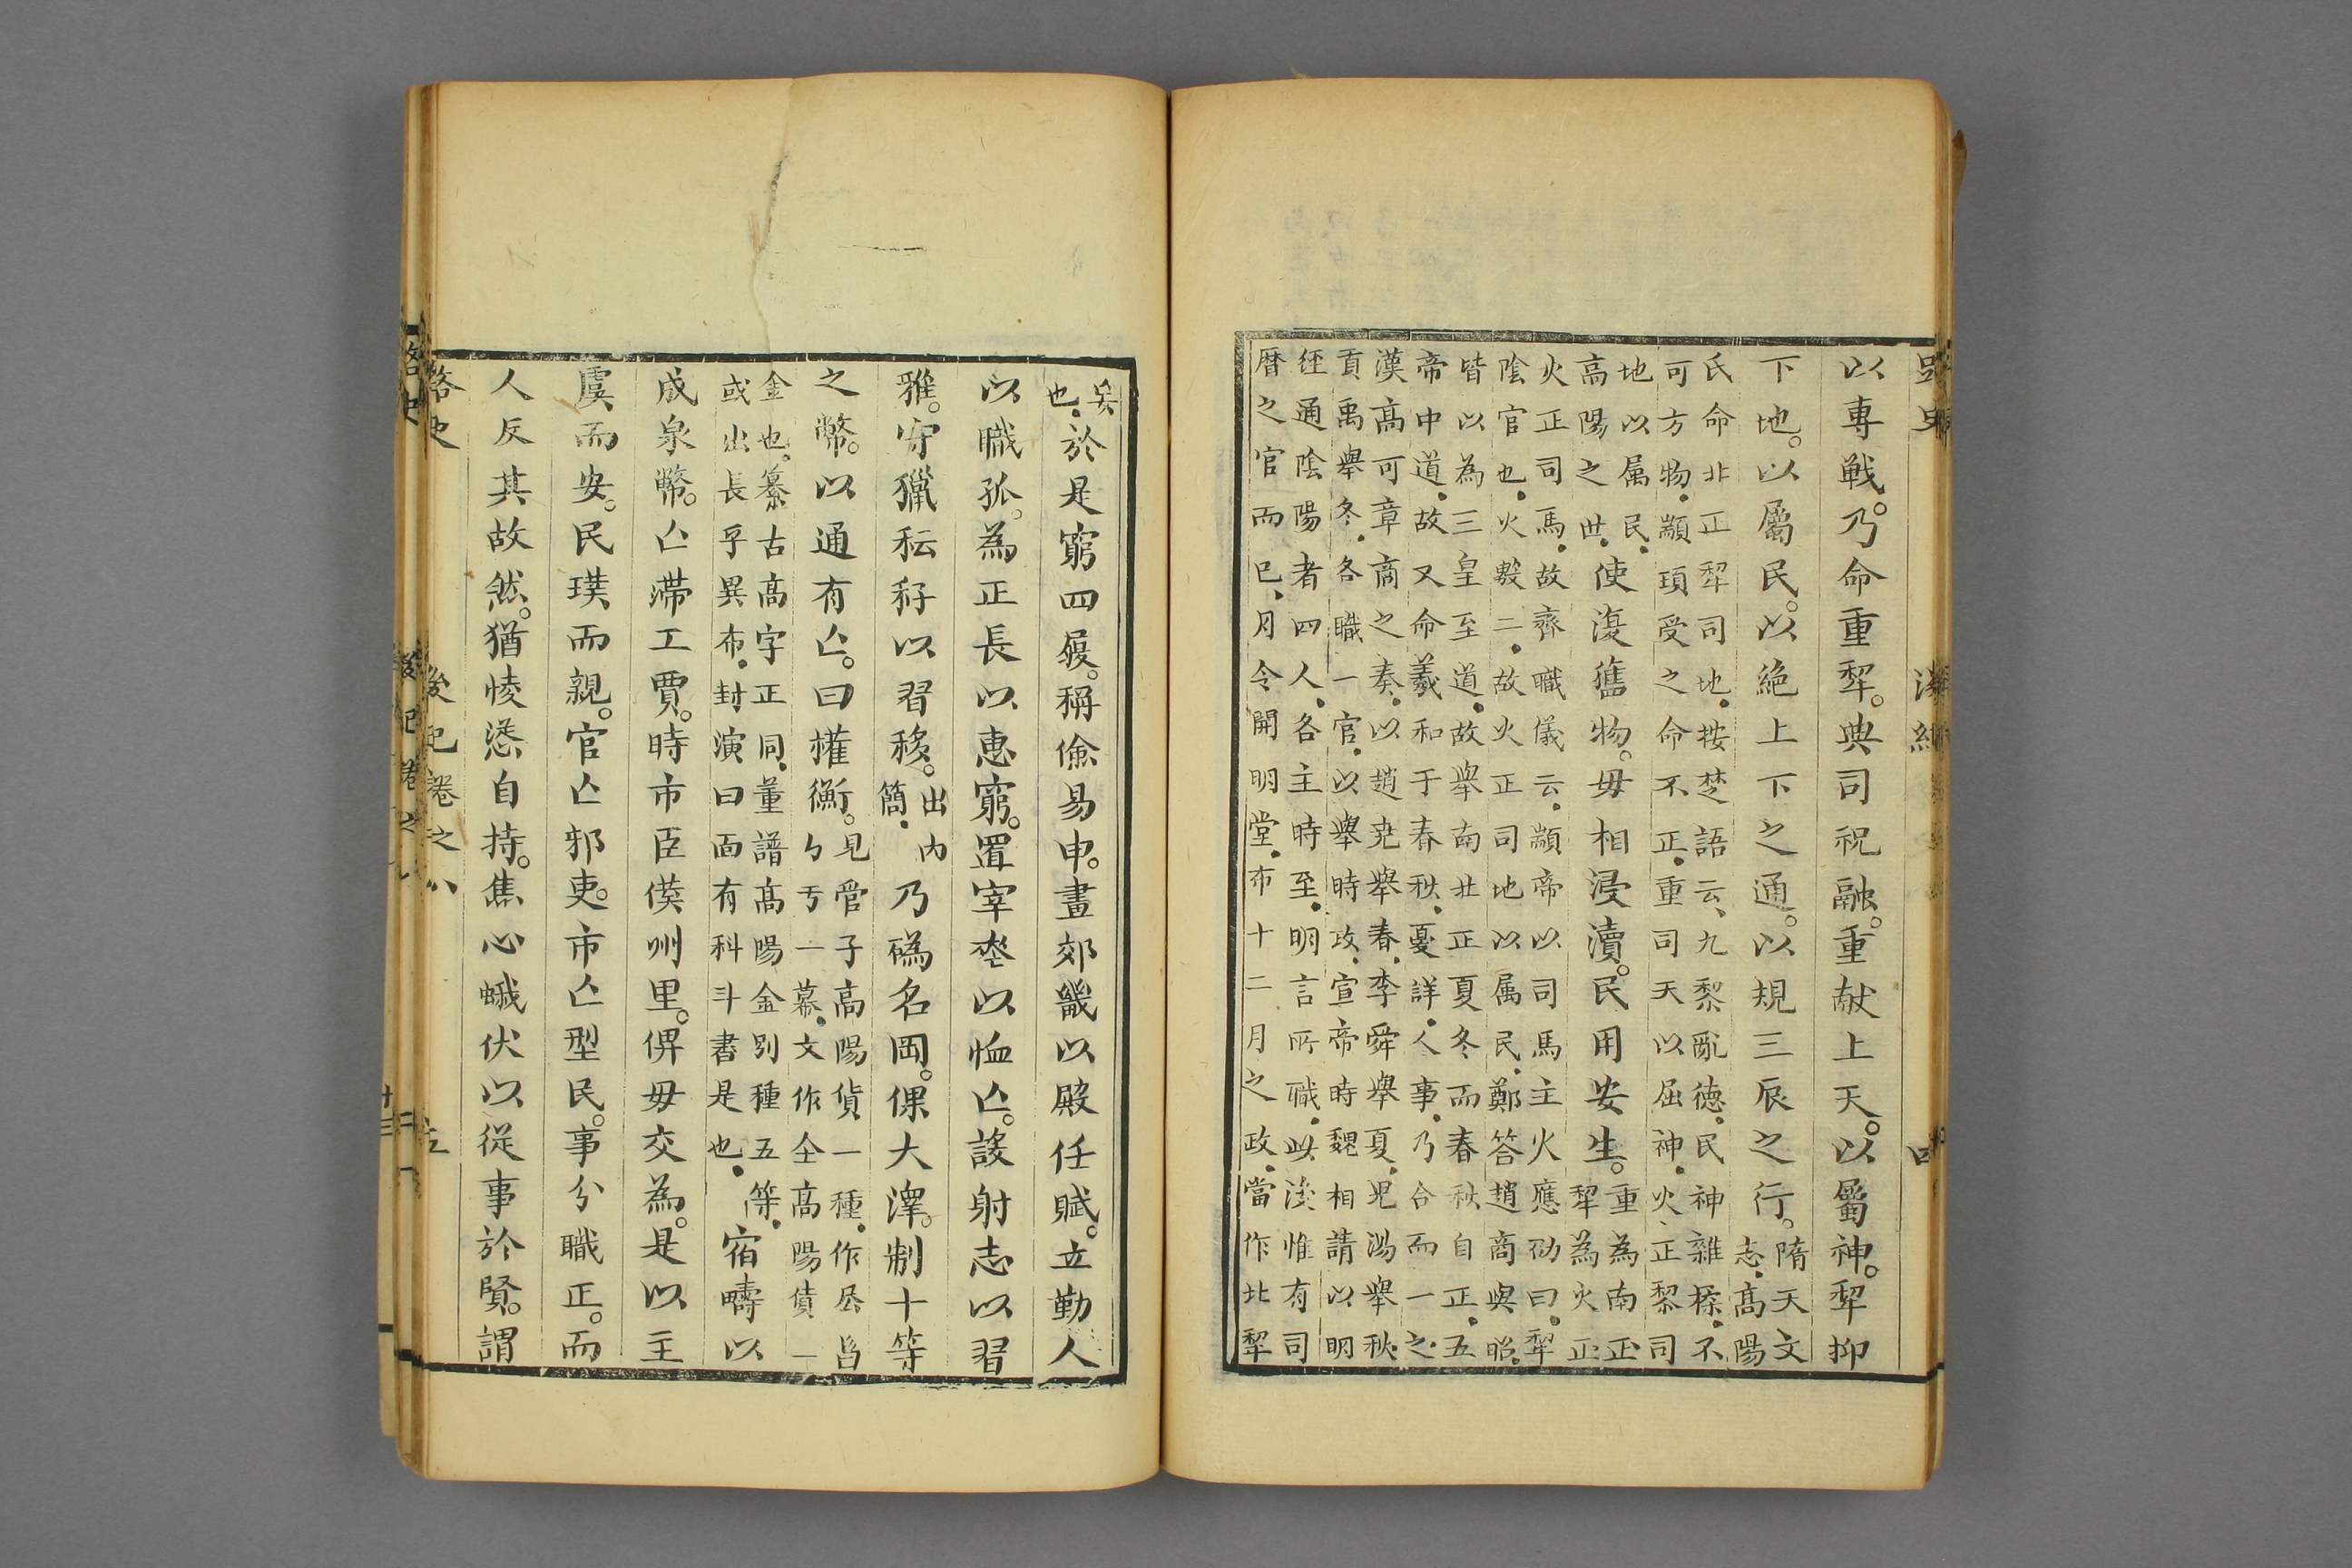 以專戰。乃命重犂。典司祝融。重献上天。以屬神。犂抑
下地。以屬民。以絶上下之通。以規三辰之行。隋天文
志、高陽
氏命北正犂司地、按楚語云、九黎亂德、民神雜糅、不
可方物、顓頊受之命不正、重司天以屈神、火正黎司
地以属民、
高陽之世、使復舊物。毋相浸瀆。民用安生。重為南正
犂為火正
火正司馬、故齊職儀云、顓帝以司馬主火應劭曰、犂
陰官也、火數二、故火正司地以属民、鄭答趙商與昭、
皆以為三皇至道、故舉南北正夏冬而春秋自正、五
帝中道、故又命羲和于春秋、憂詳人事、乃合而一之、
漢高可章商之奏、以趙尭舉春、李舜舉夏、児湯舉秋、
貢禹舉冬、各職一官、以舉時政、宣帝時魏相請以明
経通陰陽者四人、各主時至、明言所職、此後惟有司
暦之官而已、月令開明堂、布十二月之政、當作北犂
矣
也、於是窮四履。稱儉易申。畫郊畿以殿任賦。立勤人
以職孤。為正長以惠窮。置宰埊以恤亾。誃射志以習
雅。守獵耘秄以習移。出内
簡、乃碼名岡。倮大澤。制十等
之幣。以通有亾。曰權衡。見管子高陽貨一種、作𡰥㠯
𠂊丂一幕、文作仝高陽貨一
金也、纂古高字正同、董譜高陽金别種五等、
或出長孚異布、封演曰面有科斗書是也、宿疇以
成泉幣。亾滯工賈。時市臣僕州里。俾毋交為。是以主
虞而安。民璞而親。官亾邪吏。市亾型民。事分職正。而
人反其故然。猶悷悐自持。焦心蛾伏以從事於賢。謂
路史
後紀卷之八
五